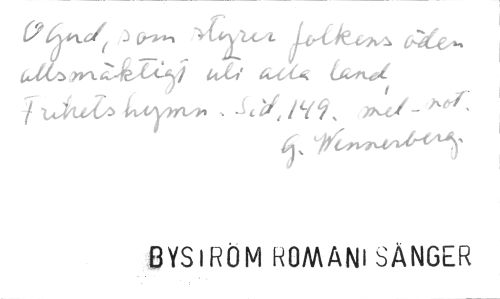 O Gud, som styrer folkens öden
allsmäktigt uti alla land,
Frihetshymn. Sid, 149. mel-not.
G. Wennerberg.
BYSTRÖM ROMANI SÅNGER